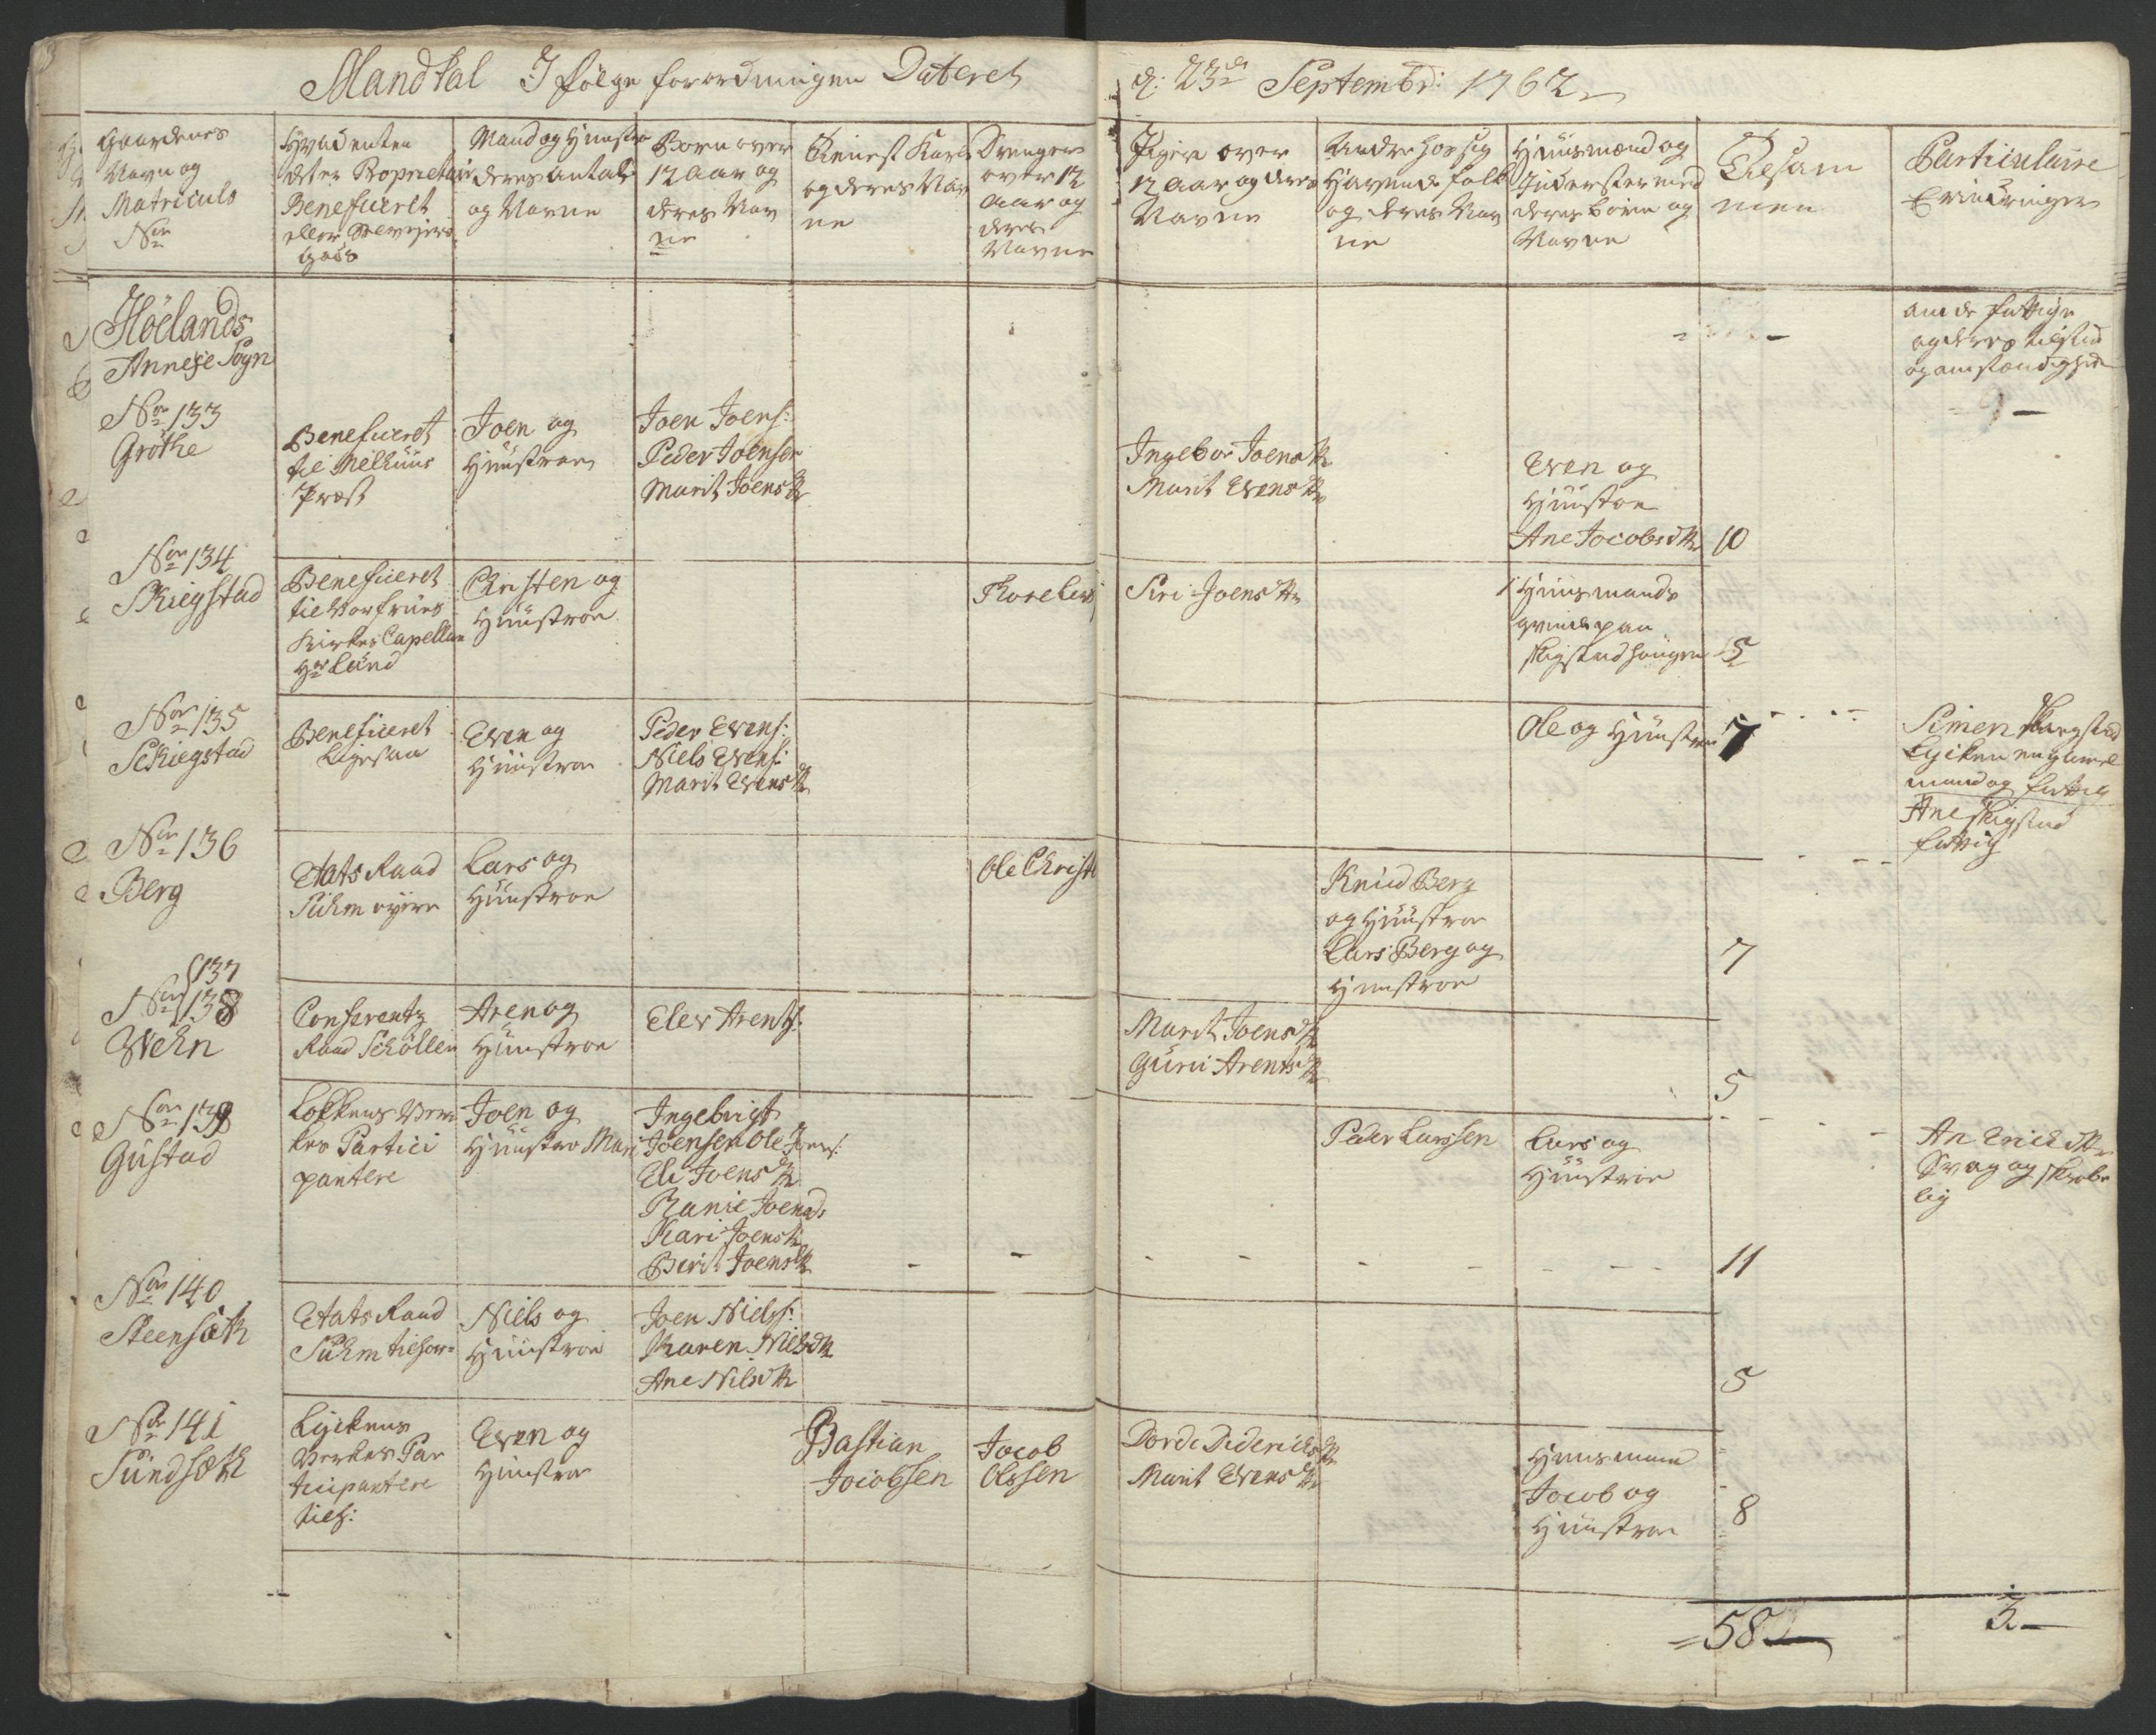 Mandtal I følge forordningen Dateret d: 23de Septembr: 1762
Gaardenes
Navn og
Matriculs
No
Hvadenten
det er Proprietair
Beneficeret
eller Selvejer
gods
Mand og Hünstroe
deres antal
og Navne
Børn over
12 Aar og
deres Nav
ne
Tienest Karle
og deres Nav
ne
Drenger
over 12
Aar og
deres
Navne
Piger over
12 Aar og deres
Navne
Andre hos sig
Havende folk
og deres Nav
ne
Hüüsmænd og
Inderster med
deres børn og
Navne
Tilsam
men
Particulaire
Erindringer
Höelands
Annexe Sogn
om de fattige
og deres tilstand
og omstændighed
No 133
Gröthe
Beneficeret
til Melhuus
Præst
Joen og
Hünstroe
Joen Joens:
Peder Joensen
Marit Joensdtr
Ingebor Joensdtr
Marit Evensdtr
Even og
Hünstroe
Ane Jacobsdtr
10
No 134
Skiegstad
Beneficeret
til Vor frues
Kirkes Capellan
Hr Lund
Christen og
Hüüstroe
Thore Lars
Siri Joensdtr
1 Hüüsmands
paa
5
No 135
Skiegstad
Beneficeret
Ligesaa
Even og
Hüüstroe
Peder Evens:
Niels Evens:
Marit Evensdtr
Ole og Hünstroe
7
Simen Skiegstad
en gamel
mand og fattig
Ane Skigstad
fattig
No 136
Berg
Etats Raad
Suhm
Lars og
Hüüstroe
Ole Christ
Knud Berg
og Hüüstroe
Lars Berg og
Hüüstroe
7
137
No 138
Wehn
Conferentz
Raad Schöller
Aren og
Hüüstroe
Elev Arents:
Marit Joensdtr
Guru Arentsdtr
5
No 139
Gustad
Løkkens Ver
kes Partici
pantere
Joen og
Hüüstro Mari
Ingebrigt
Joensen Ole Joens:
Eli Joensdtr
Ranie Joensd
Kari Joensdtr
Berit Joensdtr
Peder Larssen
Lars og
Hüüstroe
11
An Erichsdtr
Svag og skrøbe
lig
No 140
Steensæth
Etats Raad
Suhm tilhør
Niels og
Hüüstroe
Joen Niels:
Karen Nielsdtr
Ane Nilsdtr
5
No 141
Sundsæth
Lyckens
Verkes Par
ticipantere
tilh:
Even og
Hüüstroe
Bastian
Jocobsen
Jocob
Olssen
Dorde Dideriksdtr
Marit Evensdtr
Huusmand
Jocob og
Hüüstroe
8
58
3